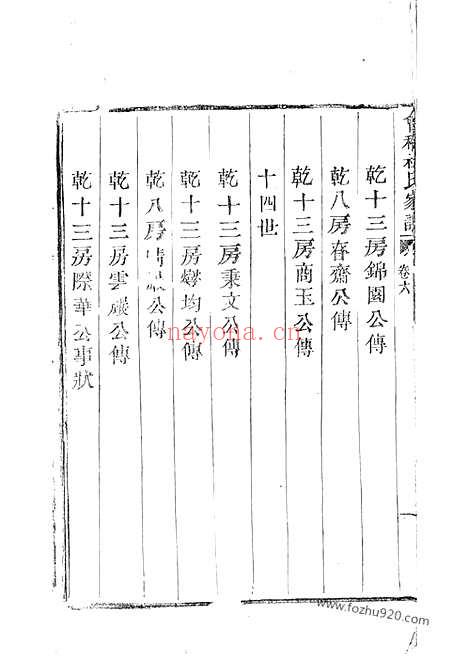 會稽孫氏家譜
卷六
乾十三房錦園公傳
乾八房春齋公傳
乾十三房商玉公傳
十四世
乾十三房秉文公傳
乾十三房燮均公傳
乾八房晴巖公傳
乾十三房雲巖公傳
乾十三房際華公事狀
nayona.cn
www.fozhu920.com